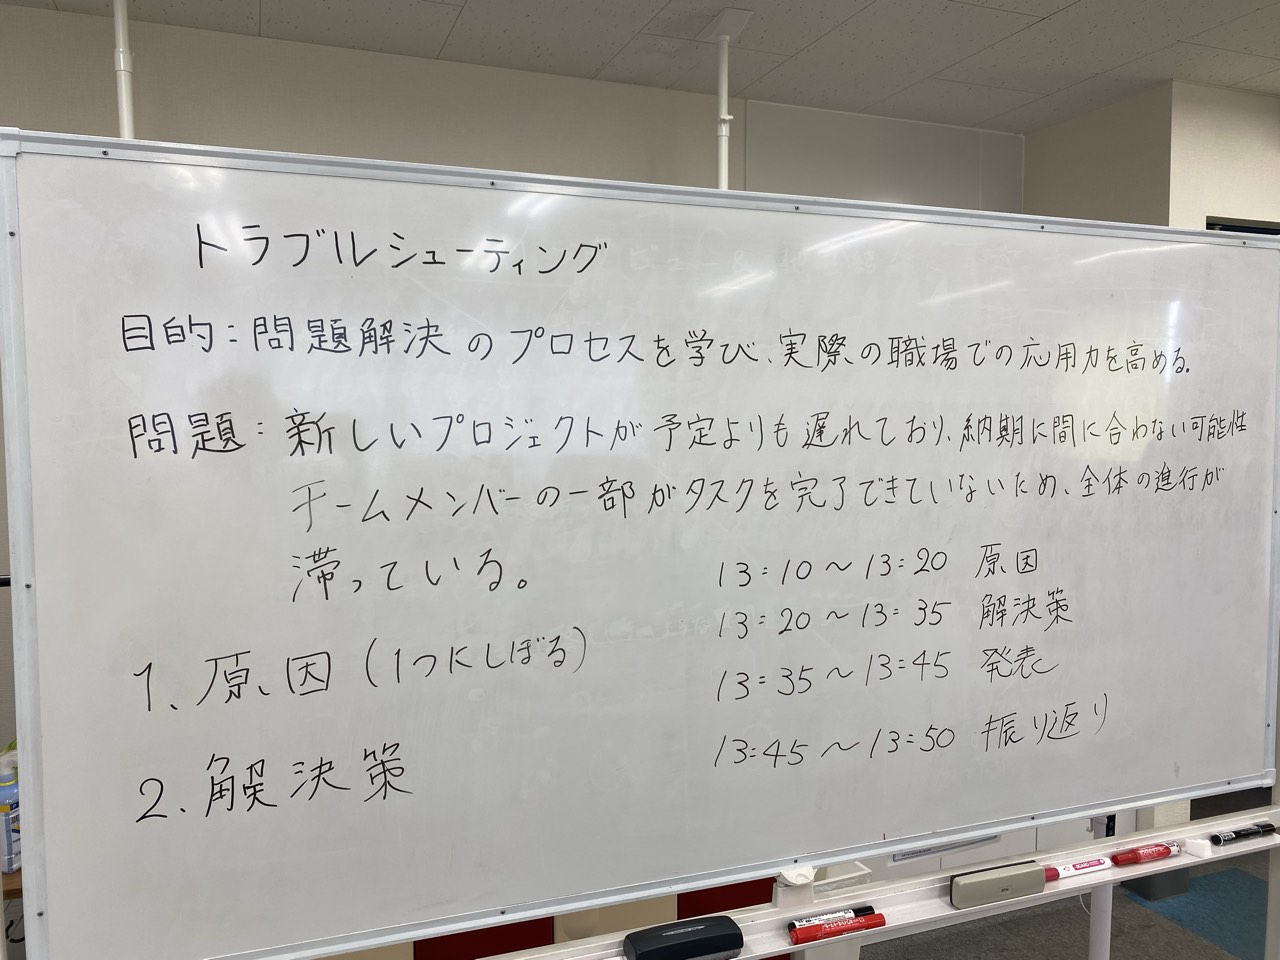 トラブルシューティング
目的：問題解決のプロセスを学び、実際の職場での応用力を高める。
問題：新しいプロジェクトが予定よりも遅れており、納期に間に合わない可能性
チームメンバーの一部がタスクを完了できていないため、全体の進行が
滞っている。
1、原因（1つにしぼる）
2、解決策
13:10～13:20 原因
13:20～13:35 解決策
13:35～13:45 発表
13:45～13:50 振り返り